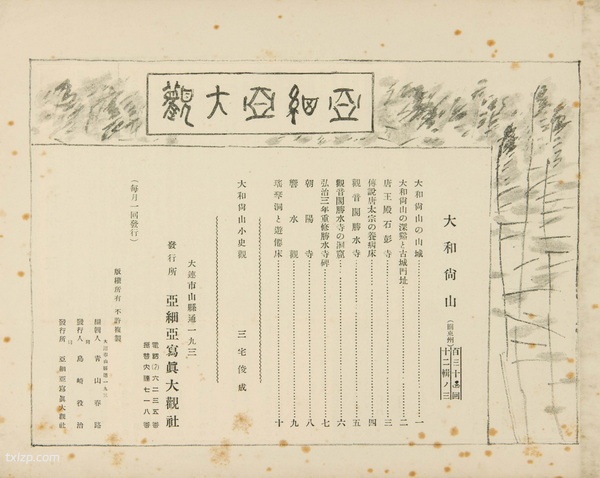 亞細亞大觀
大和尙山
(關東州)
十二輯ノ三
大和尙山の山城 一
大和尙山の深谿と古城門址 二
唐王殿石彭寺 三
傳說唐太宗の養病床 四
觀音閣勝水寺 五
觀音閣勝水寺の洞窟 六
弘治三年重修勝水寺碑 七
朝陽寺 八
響水觀 九
瑤琴洞と遊僊床 十
大和尙山小史觀 三宅俊成
(每月一回發行)
大連市山縣通一九三
發行所 亞細亞寫眞大觀社
電話(2)六二三五番
振替大連七一八番
版權所有 不許複製
大連市山縣通一九三
編輯人 靑山春路
同
發行人 島崎役治
同
發行所 亞細亞寫眞大觀社
txlzp.com